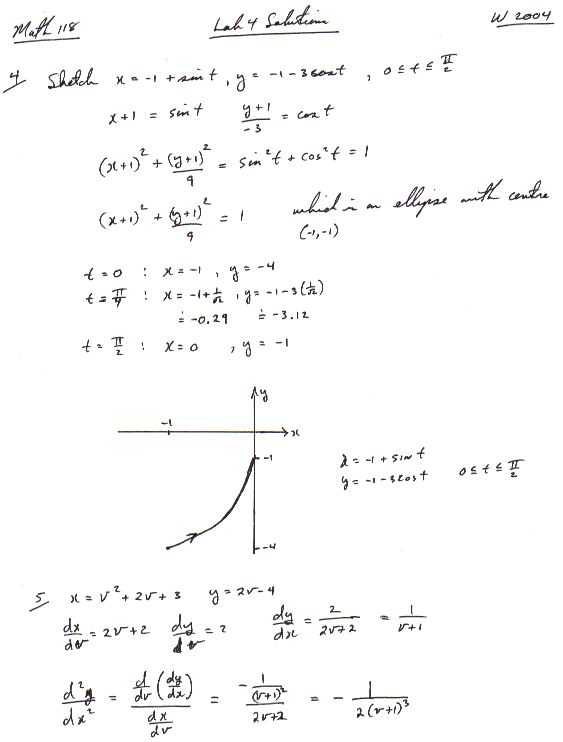 Math 118 Lab 4 Solutions W 2004
4 Sketch x = -1 + sin t , y = -1 - 3 cos t , 0 ≤ t ≤ π/2
x+1 = sin t (y+1)/-3 = cos t
(x+1)² + (y+1)²/9 = sin² t + cos² t = 1
(x+1)² + (y+1)²/9 = 1 which is an ellipse with centre
(-1,-1)
t = 0 : x = -1 , y = -4
t = π/4 : x = -1 + 1/√2 , y = -1 - 3(1/√2)
≐ -0.29 ≐ -3.12
t = π/2 : x = 0 , y = -1
y
-1
x
-1
x = -1 + sin t
y = -1 - 3 cos t 0 ≤ t ≤ π/2
-4
5 x = v² + 2v + 3 y = 2v - 4
dx/dv = 2v + 2 dy/dv = 2 dy/dx = 2/(2v+2) = 1/(v+1)
d²y/dx² = (d/dv (dy/dx))/(dx/dv) = (-1/(v+1)²)/(2v+2) = - 1/(2(v+1)³)